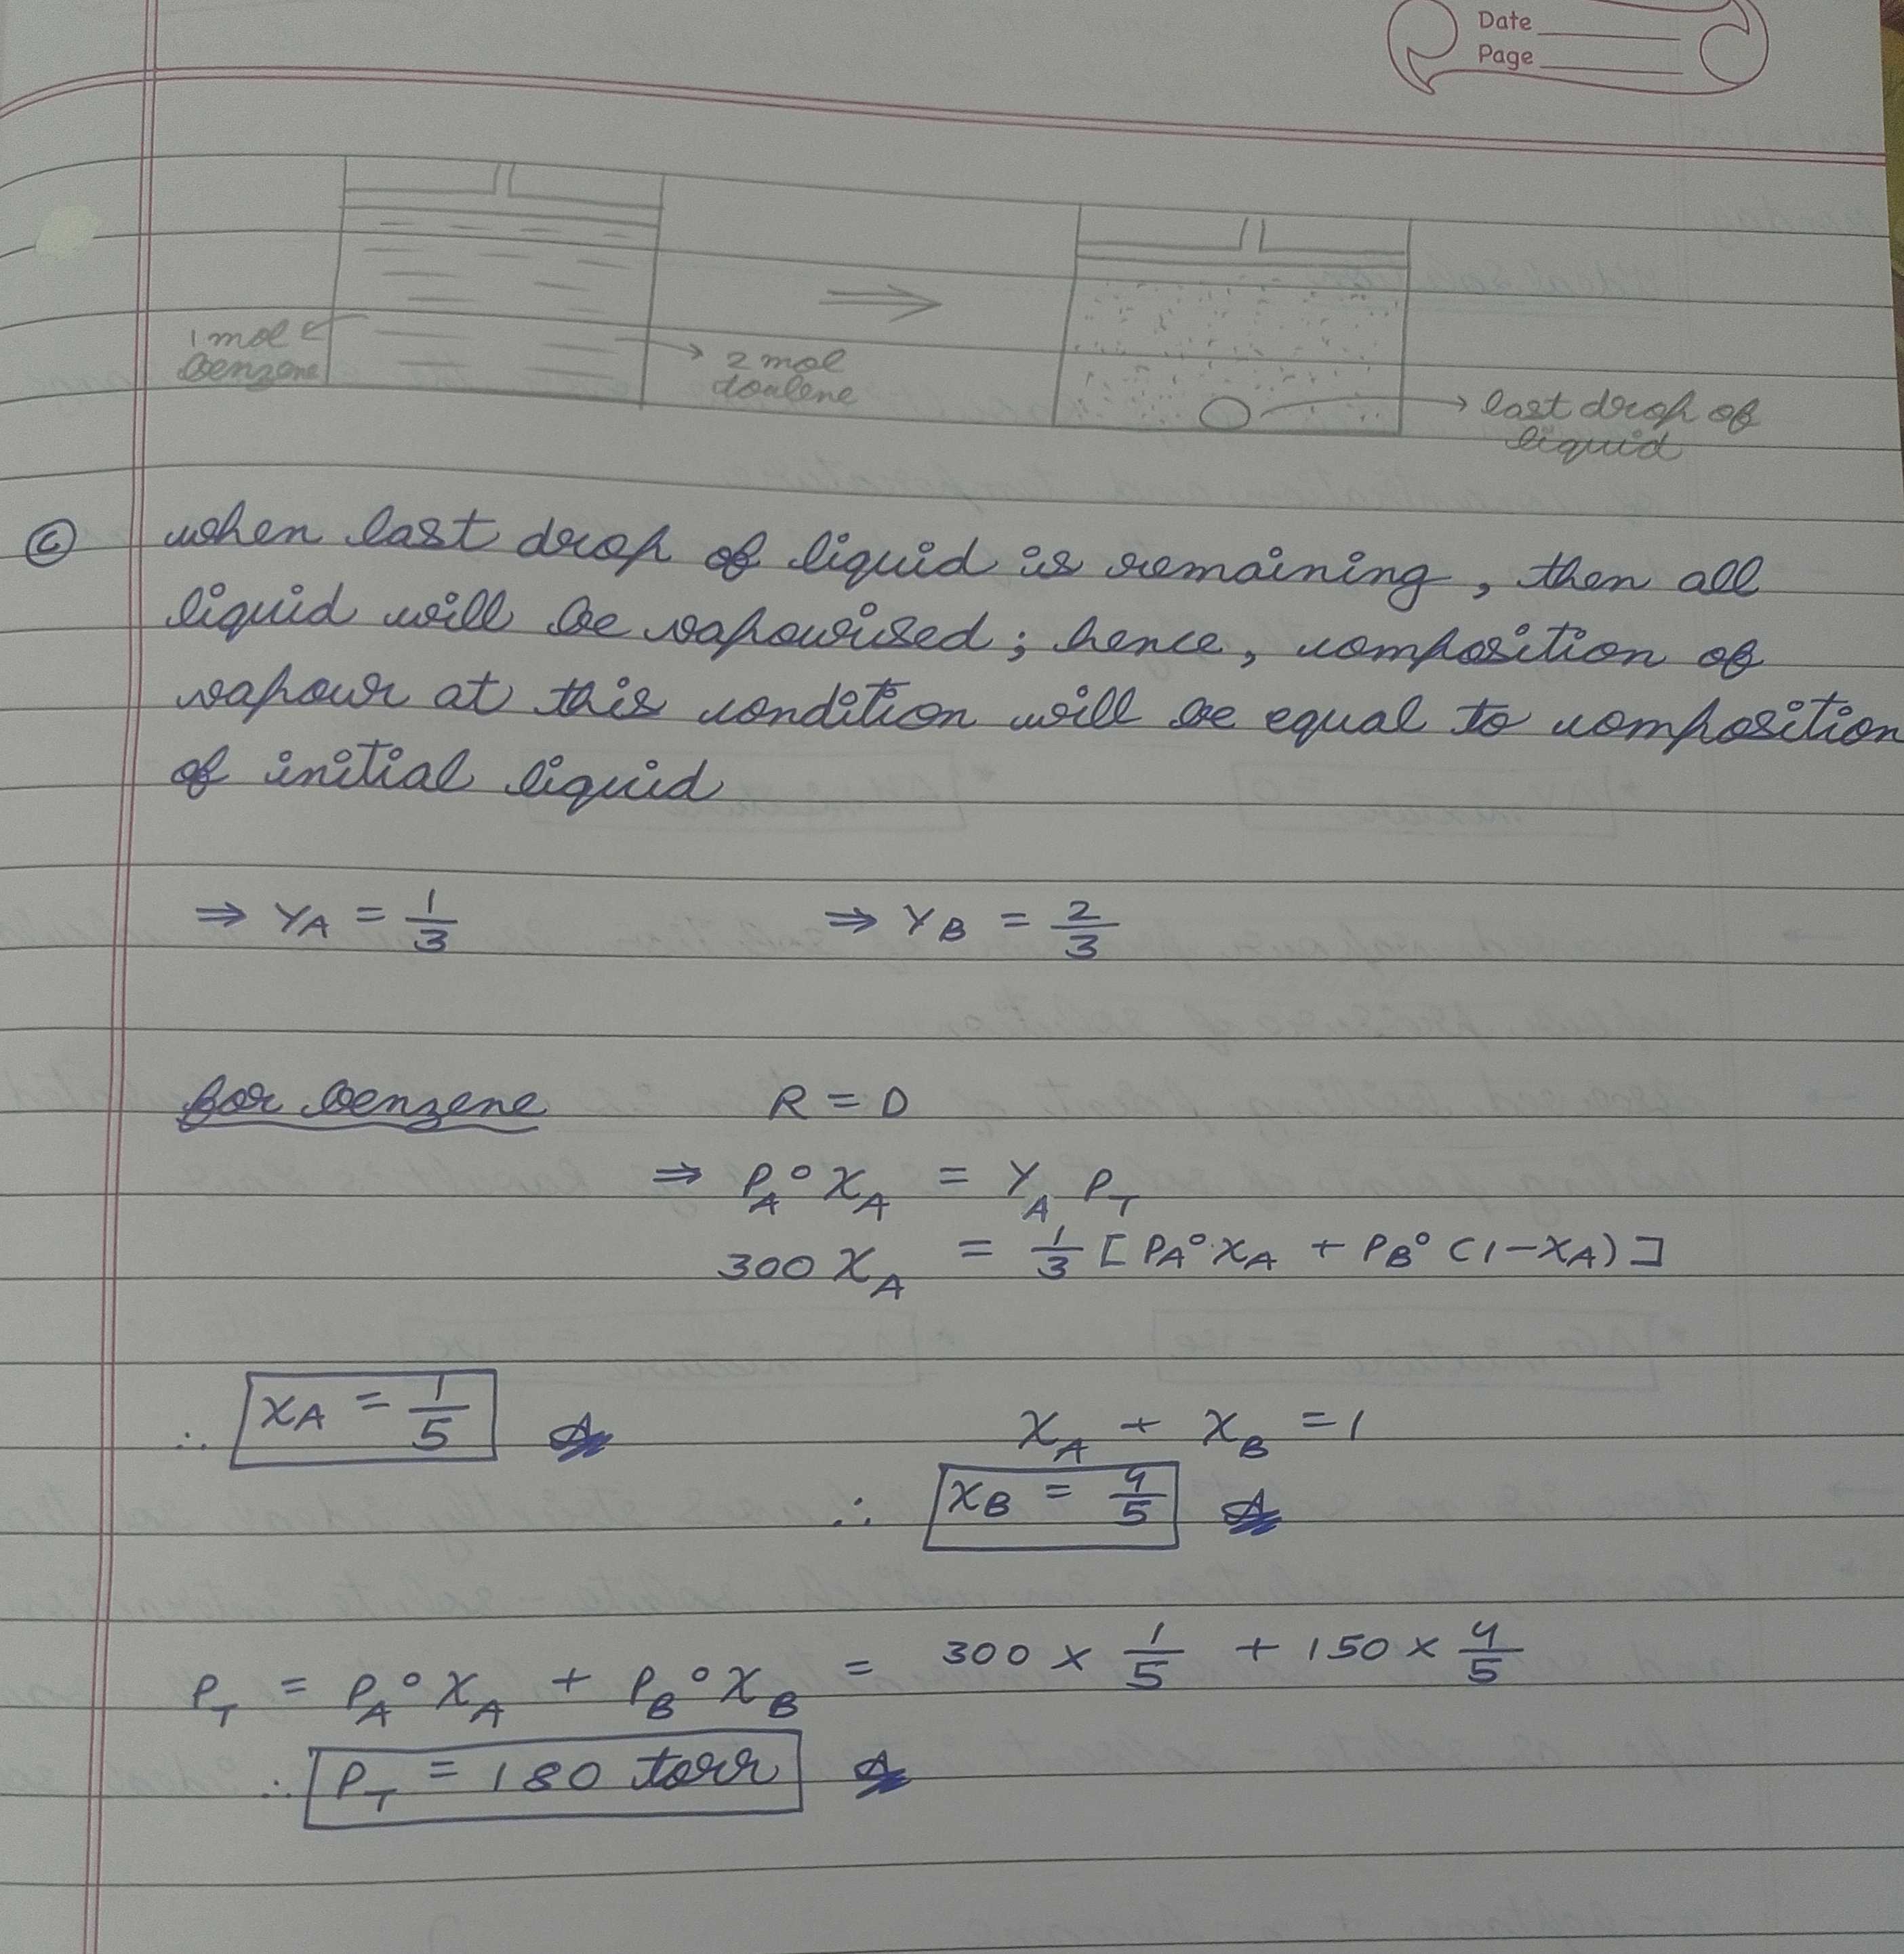 Date
Page
1 mol
benzene
2 mol
toulene
last drop of
liquid
(C) when last drop of liquid is remaining, then all
liquid will be vapourised; hence, composition of
vapour at this condition will be equal to composition
of initial liquid
⇒ YA = 1/3 ⇒ YB = 2/3
for benzene R = D
⇒ PA° XA = YA PT
300 XA = 1/3 [PA° XA + PB° (1-XA)]
∴ XA = 1/5
XA + XB = 1
∴ XB = 4/5
PT = PA° XA + PB° XB = 300 × 1/5 + 150 × 4/5
∴ PT = 180 torr